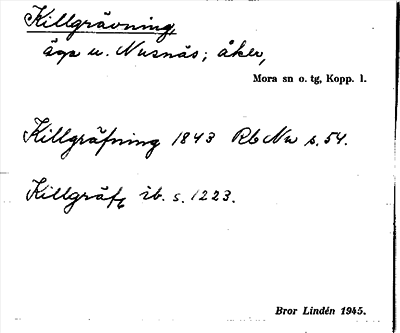 Killgrävning,
äga u. Nusnäs; åker,
Mora sn o. tg, Kopp. l.
Killgräfning 1843 Rb Nu s. 54.
Killgräf, ib. s. 1223.
Bror Lindén 1945.